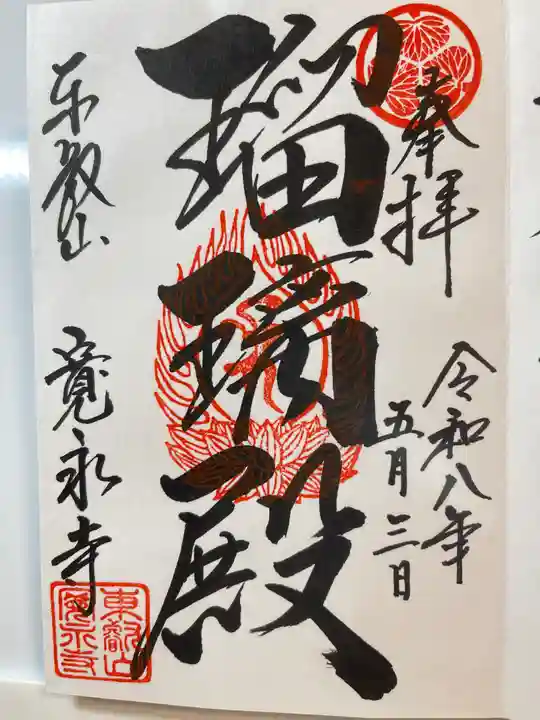 奉拝
令和八年
五月三日
瑠璃殿
东叡山
寛永寺
東叡山
寛永寺